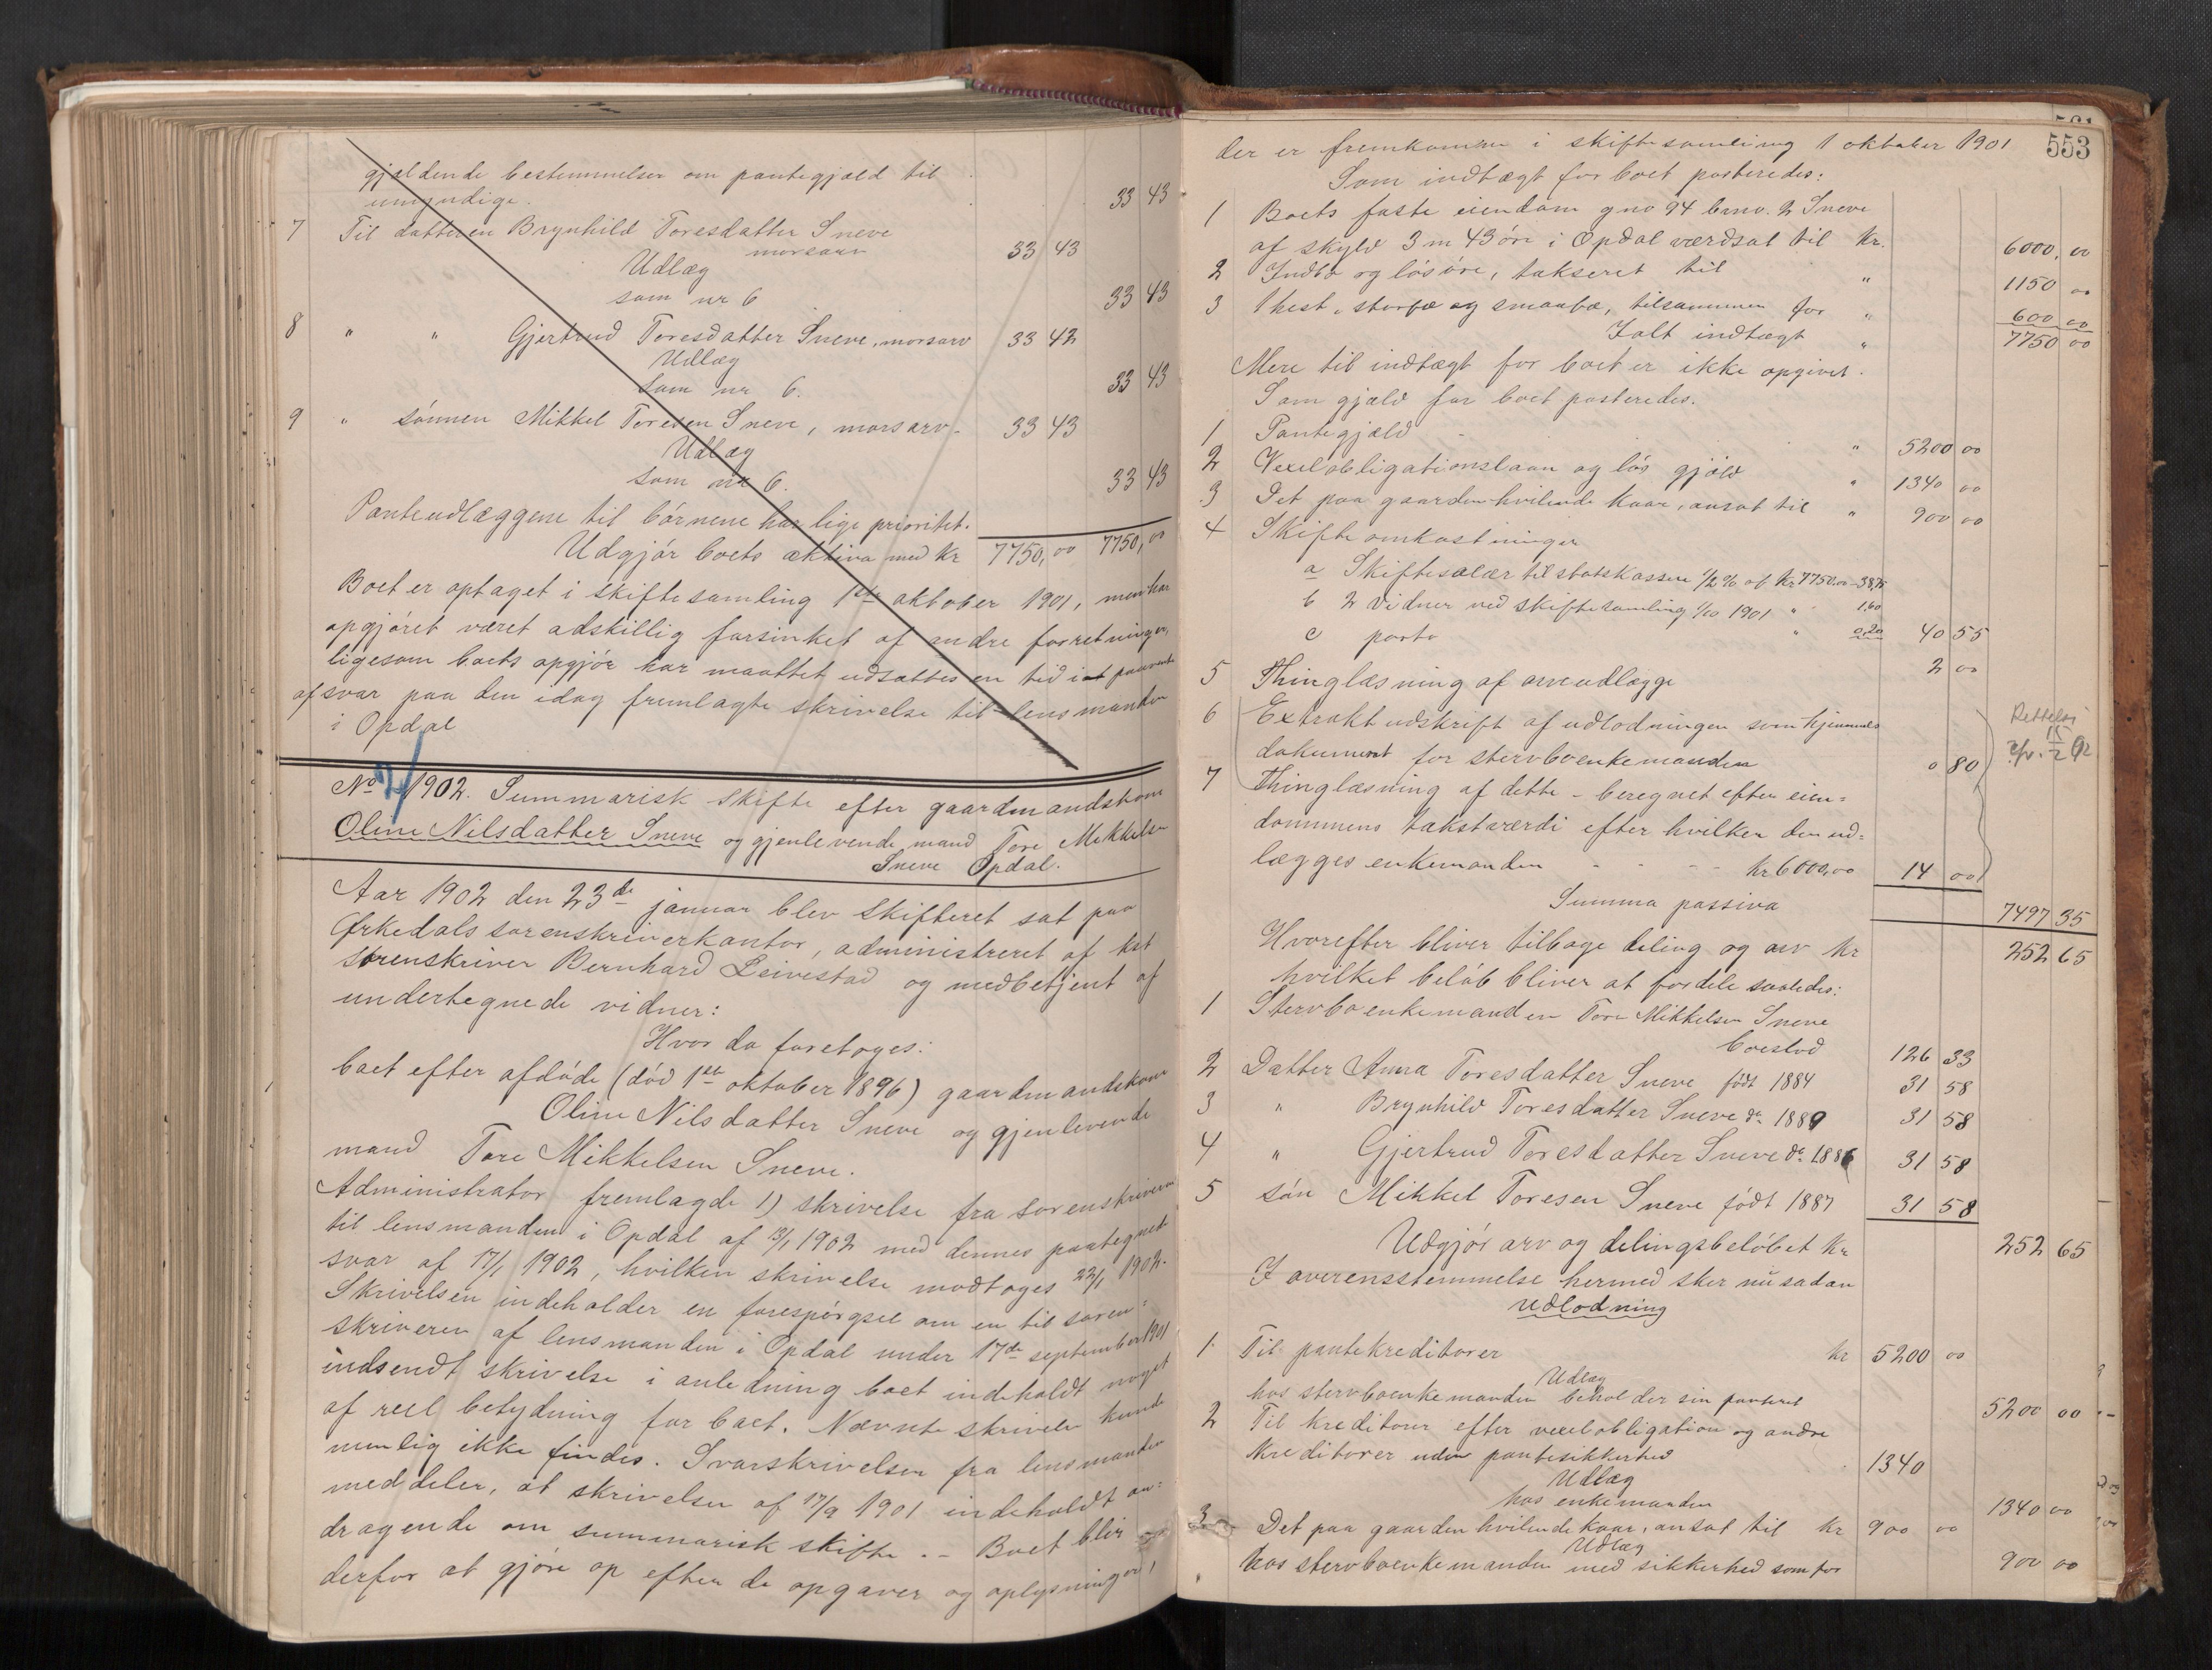 gjældende bestemmelser om pantegjæld til
umyndige. 33 43
7 Til datteren Brynhild Toresdatter Sneve
morsarv 33 43
Udlæg
som nr 6 33 43
8 " " Gjertrud Toresdatter Sneve, morsarv 33 42
Udlæg
som nr 6. 33 43
9 " sönnen Mikkel Toresen Sneve, morsarv. 33 43
Udlæg
som nr 6. 33 43
Panteudlæggene til börnene har lige prioritet.
Udgjör boets aktiva med kr 7750,00 7750,00
Boet er optaget i skiftesamling 1ste oktober 1901, men har
opgjöret været adskillig forsinket af andre forretninger,
ligesom boets opgjör har maattet udsættes en tid i paavente
af svar paa den idag fremlagte skrivelse til lensmanden
i Opdal
No 7/1902. Summarisk skifte efter gaardmandskone
Oline Nilsdatter Sneve og gjenlevende mand Tore Mikkelsen
Sneve Opdal.
Aar 1902 den 23de januar blev skifteret sat paa
Örkedals sorenskriverkontor, administreret af kst
sorenskriver Bernhard Leivestad og medbetjent af
undertegnede vidner:
Hvor da foretoges:
1 boet efter afdöde (död 1ste oktober 1896) gaardmandskone
Oline Nilsdatter Sneve og gjenlevende
mand Tore Mikkelsen Sneve.
Administrator fremlagde 1) skrivelse fra sorenskriveren
til lensmanden i Opdal af 13/1 1902 med dennes paategnede
svar af 17/1 1902, hvilken skrivelse modtoges 22/1 1902.
Skrivelsen indeholder en forespörgsel om en til soren=
skriveren af lensmanden i Opdal under 17de september 1901
indsendt skrivelse i anledning boet indeholdt noget
af reel betydning for boet. Nævnte skrivelse kunde
nemlig ikke findes. Svarskrivelsen fra lensmanden
meddeler, at skrivelsen af 17/9 1901 indeholdt an=
dragende om summarisk skifte. – Boet blir
derfor at gjöre op efter de opgaver og oplysninger,
553
der er fremkommen i skiftesamling 1 oktober 1901
Som indtægt for boet posteredes:
1 Boets faste eiendom gno 94 brno. 2 Sneve
af skyld 3 m 43 öre i Opdal værdsat til kr. 6000,00
2 Indbo og lösöre, takseret til " 1150 00
3 1 hest, storfæ og smaafæ, tilsammen for " 600 00
Ialt indtægt " 7750 00
Mere til indtægt for boet er ikke opgivet.
Som gjæld for boet posteredes.
1 Pantegjæld " 5200 00
2 Vexelobligationslaan og lös gjæld " 1340 00
3 Det paa gaarden hvilende kaar, ansat til " 900 00
4 Skifteomkostninger
a Skiftesalær til statskassen 1/2 % af kr 7750.00 – 38,75
b 2 vidner ved skiftesamling 1/10 1901 " 1,60
c porto " 0,20 40 55
5 Thinglæsning af arveudlægge 2 00
6 Extraktudskrift af udlodningen som hjemmels
dokument for stervboenkemanden 0 80
Rettelse
15/2 02
7 Thinglæsning af dette – beregnet efter eien=
dommens takstværdi efter hvilken den ud=
lægges enkemanden - - - kr 6000,00 14 00
Summa passiva 7497 35
Hvorefter bliver tilbage deling og arv kr 252 65
hvilket belöb bliver at fordele saaledes:
1 Stervboenkemanden Tore Mikkelsen Sneve
boeslod 126 33
2 Datter Anna Toresdatter Sneve födt 1884 31 58
3 " Brynhild Toresdatter Sneve do 1889 31 58
4 " Gjertrud Toresdatter Sneve do 1886 31 58
5 sön Mikkel Toresen Sneve födt 1887 31 58
Udgjör arv og delingsbelöbet kr 252 65
I overensstemmelse hermed sker nu sadan
udlodning
1. Til pantekreditorer kr 5200 00
Udlæg
hos stervboenkemanden beholder sin panteret 5200 00
2 Til kreditorer efter vexelobligation og andre
kreditorer uden pantesikkerhed 1340
Udlæg
hos enkemanden 1340 00
3 Det paa gaarden hvilende kaar, ansat til kr 900 00
Udlæg
hos stervboenkemanden med sikkerhed som för 900 00